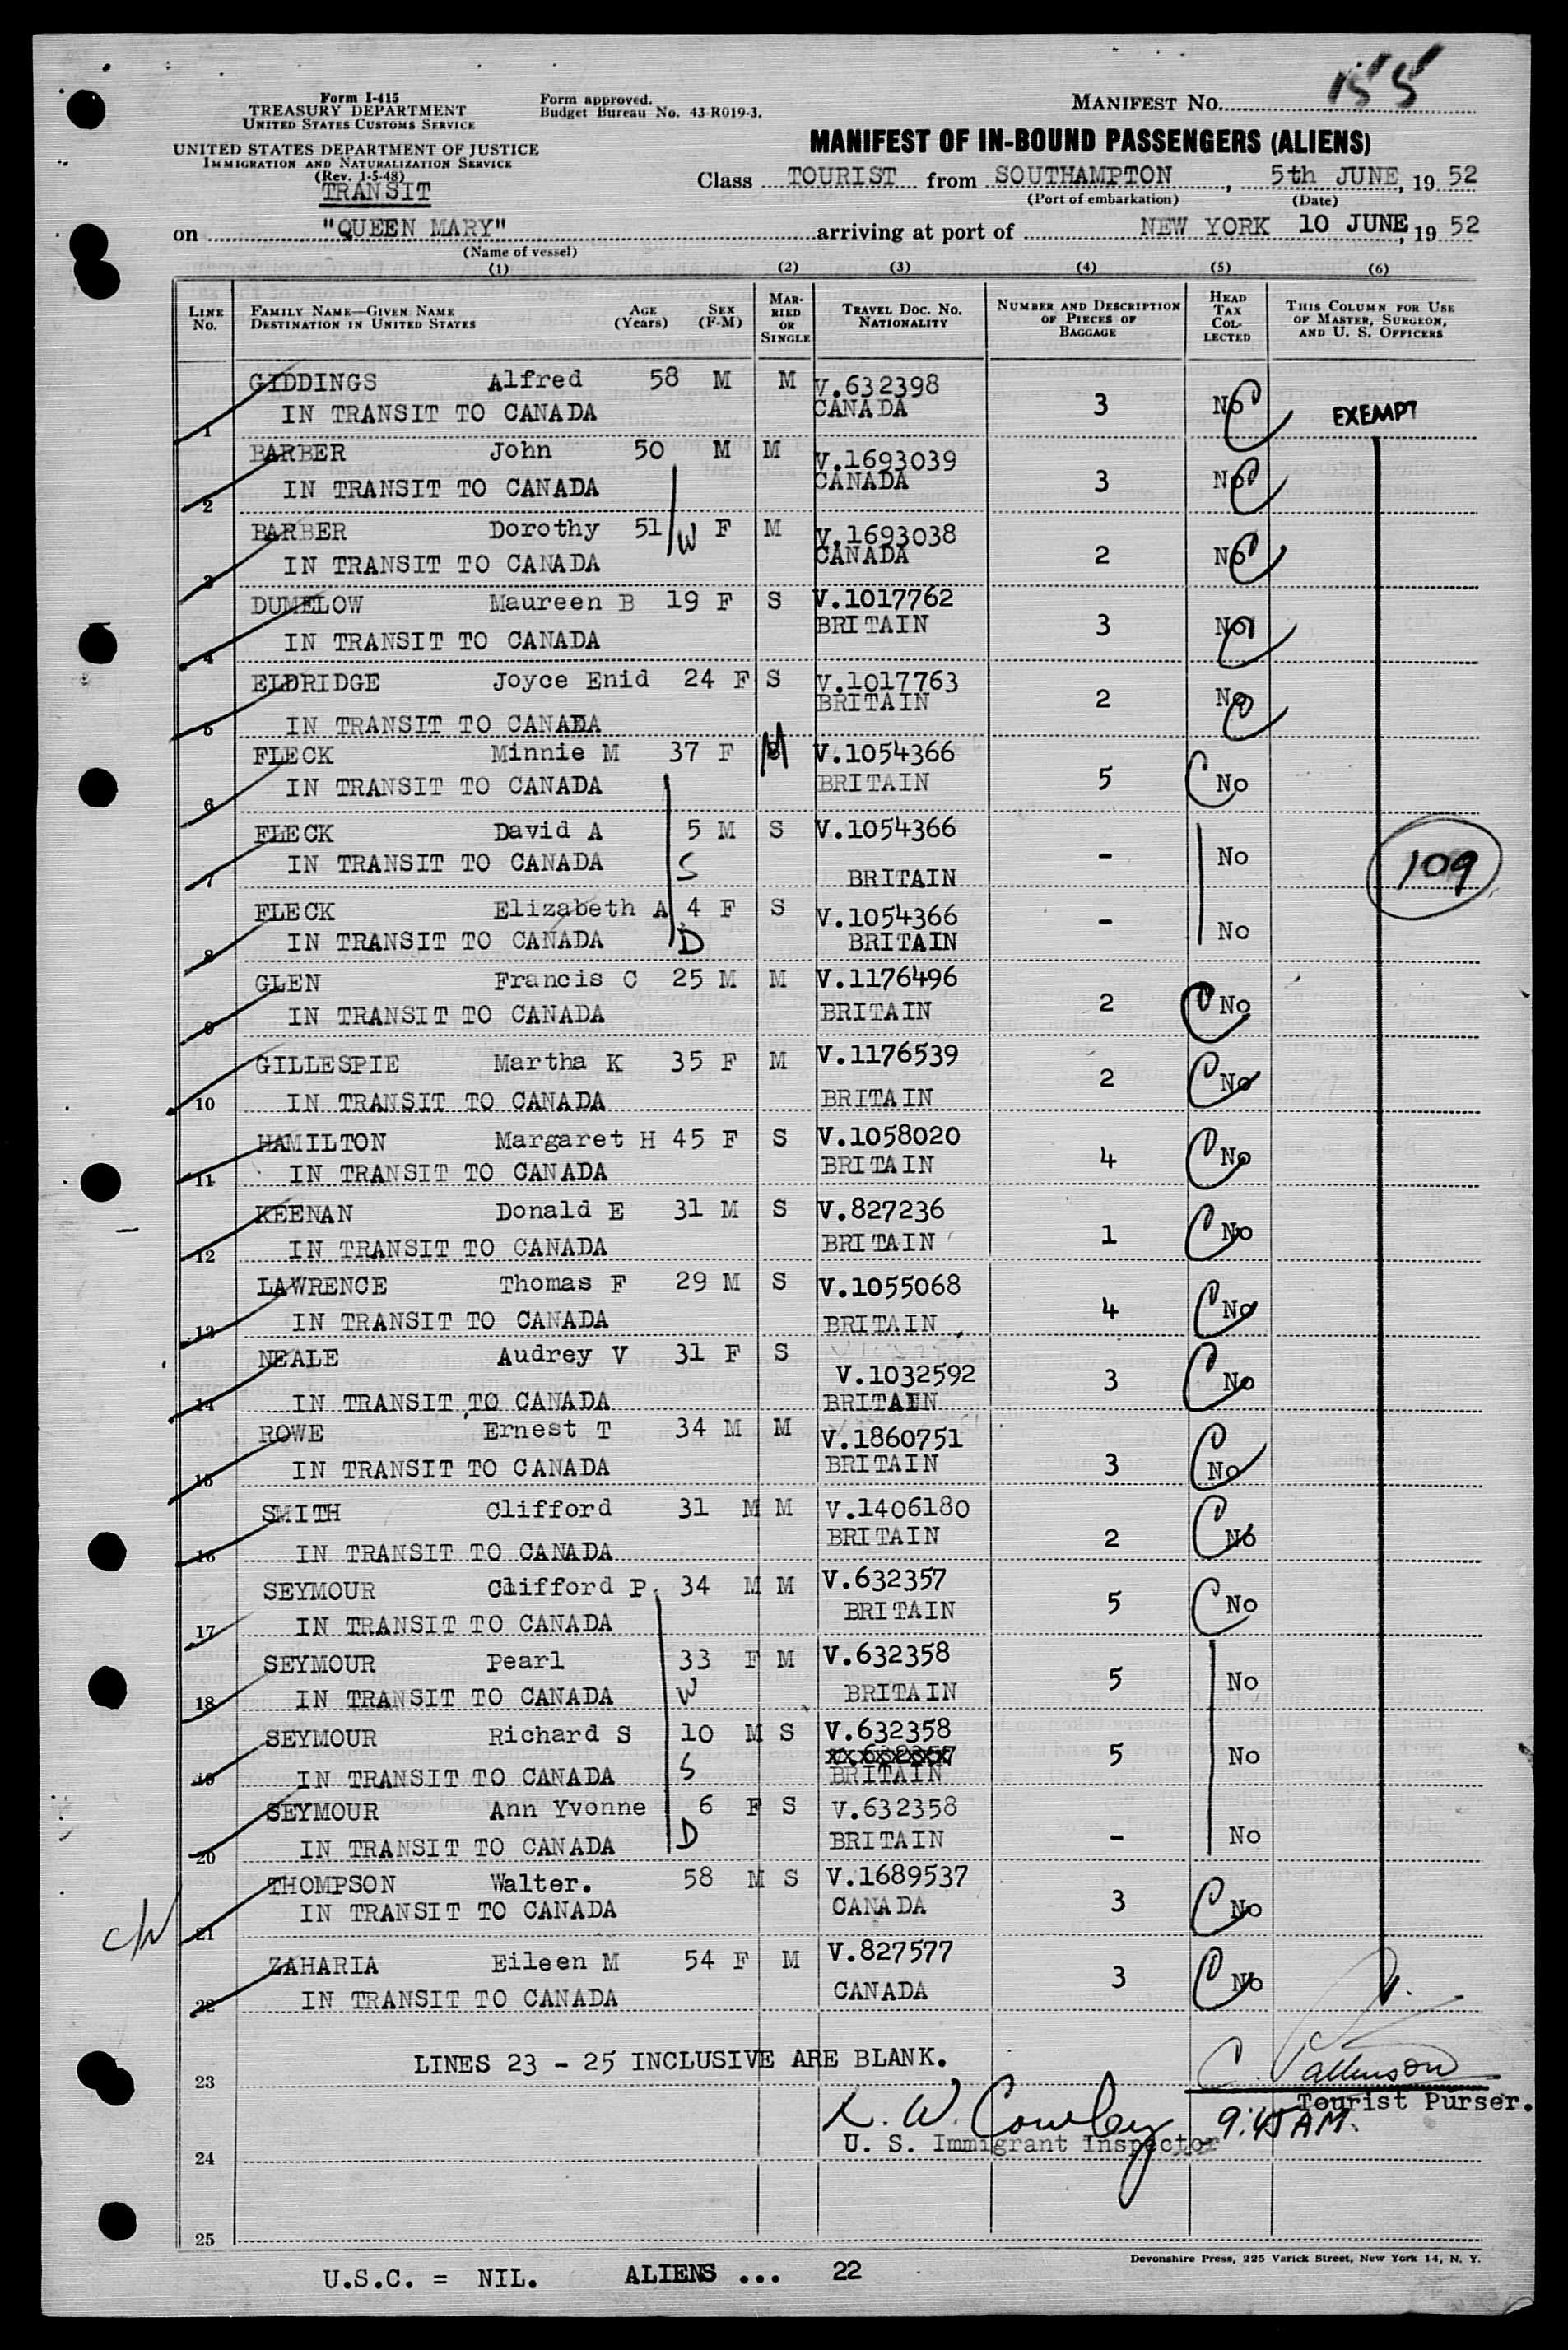 155
Form I-415
TREASURY DEPARTMENT
UNITED STATES CUSTOMS SERVICE
Form approved.
Budget Bureau No. 43-R019-3.
MANIFEST NO.
UNITED STATES DEPARTMENT OF JUSTICE
IMMIGRATION AND NATURALIZATION SERVICE
(Rev. 1-5-48)
TRANSIT
MANIFEST OF IN-BOUND PASSENGERS (ALIENS)
Class TOURIST from SOUTHAMPTON, 5th JUNE, 19 52
(Port of embarkation) (Date)
on "QUEEN MARY" arriving at port of NEW YORK 10 JUNE, 19 52
(Name of vessel)
(1) (2) (3) (4) (5) (6)
LINE No. FAMILY NAME—GIVEN NAME DESTINATION IN UNITED STATES AGE (Years) SEX (F-M) MARRIED OR SINGLE TRAVEL DOC. NO. NATIONALITY NUMBER AND DESCRIPTION OF PIECES OF BAGGAGE HEAD TAX COLLECTED THIS COLUMN FOR USE OF MASTER, SURGEON, AND U. S. OFFICERS
GIDDINGS Alfred 58 M M V.632398
1 IN TRANSIT TO CANADA CANADA 3 No EXEMPT
BARBER John 50 M M V.1693039
2 IN TRANSIT TO CANADA CANADA 3 No
BARBER Dorothy 51 W F M V.1693038
3 IN TRANSIT TO CANADA CANADA 2 No
DUMELOW Maureen B 19 F S V.1017762
4 IN TRANSIT TO CANADA BRITAIN 3 No
ELDRIDGE Joyce Enid 24 F S V.1017763
5 IN TRANSIT TO CANADA BRITAIN 2 No
FLECK Minnie M 37 F M V.1054366
6 IN TRANSIT TO CANADA BRITAIN 5 No
FLECK David A 5 M S V.1054366
7 IN TRANSIT TO CANADA S BRITAIN - No 109
FLECK Elizabeth A 4 F S V.1054366
8 IN TRANSIT TO CANADA D BRITAIN - No
GLEN Francis C 25 M M V.1176496
9 IN TRANSIT TO CANADA BRITAIN 2 No
GILLESPIE Martha K 35 F M V.1176539
10 IN TRANSIT TO CANADA BRITAIN 2 No
HAMILTON Margaret H 45 F S V.1058020
11 IN TRANSIT TO CANADA BRITAIN 4 No
KEENAN Donald E 31 M S V.827236
12 IN TRANSIT TO CANADA BRITAIN 1 No
LAWRENCE Thomas F 29 M S V.1055068
13 IN TRANSIT TO CANADA BRITAIN 4 No
NEALE Audrey V 31 F S V.1032592
14 IN TRANSIT TO CANADA BRITAIN 3 No
ROWE Ernest T 34 M M V.1860751
15 IN TRANSIT TO CANADA BRITAIN 3 No
SMITH Clifford 31 M M V.1406180
16 IN TRANSIT TO CANADA BRITAIN 2 No
SEYMOUR Clifford P. 34 M M V.632357
17 IN TRANSIT TO CANADA BRITAIN 5 No
SEYMOUR Pearl 33 F M V.632358
18 IN TRANSIT TO CANADA W BRITAIN 5 No
SEYMOUR Richard S 10 M S V.632358
19 IN TRANSIT TO CANADA S BRITAIN 5 No
SEYMOUR Ann Yvonne 6 F S V.632358
20 IN TRANSIT TO CANADA D BRITAIN - No
THOMPSON Walter. 58 M S V.1689537
21 IN TRANSIT TO CANADA CANADA 3 No
ZAHARIA Eileen M 54 F M V.827577
22 IN TRANSIT TO CANADA CANADA 3 No
23 LINES 23 - 25 INCLUSIVE ARE BLANK.
Tourist Purser.
9:45 AM.
U. S. Immigrant Inspector
24
25
Devonshire Press, 225 Varick Street, New York 14, N. Y.
U.S.C. = NIL. ALIENS ... 22